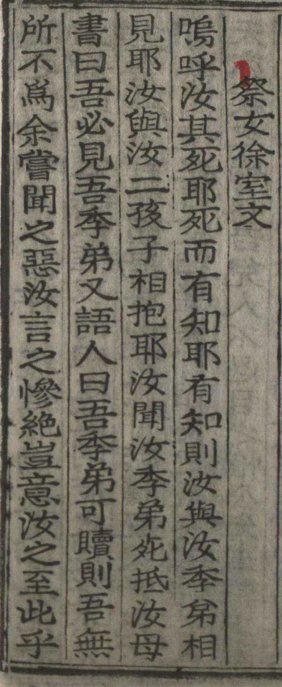 祭女徐室文
嗚呼汝其死耶死而有知耶有知則汝與汝季弟相
見耶汝與汝二孩子相抱耶汝聞汝季弟死抵汝母
書曰吾必見吾季弟又語人曰吾季弟可贖則吾無
所不爲余嘗聞之惡汝言之慘絶豈意汝之至此乎